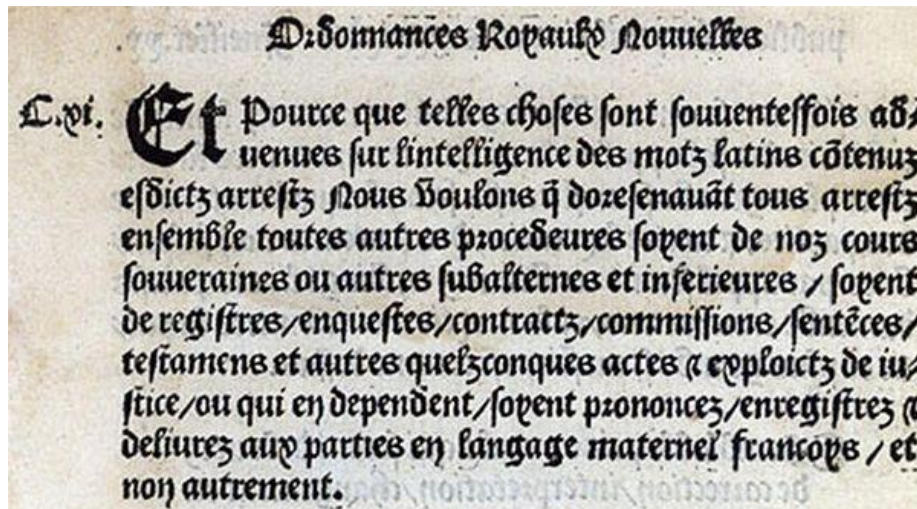 Ordonnances Royaulx Nouuelles
C.xi. Et Pource que telles choses sont souuenteffois ad/
uenues sur lintelligence des motz latins cõtenuz
esdictz arrestz Nous Voulons q̃ doresenauãt tous arrestz
ensemble toutes autres procedeures soyent de noz cours
souueraines ou autres subalternes et inferieures / soyent
de registres/enquestes/contractz/commissions/sentẽces/
testamens et autres quelzconques actes ⁊ exploictz de iu/
stice/ou qui en dependent/soyent prononcez/enregistrez ⁊
deliurez aux parties en langage maternel francoys / et
non autrement.